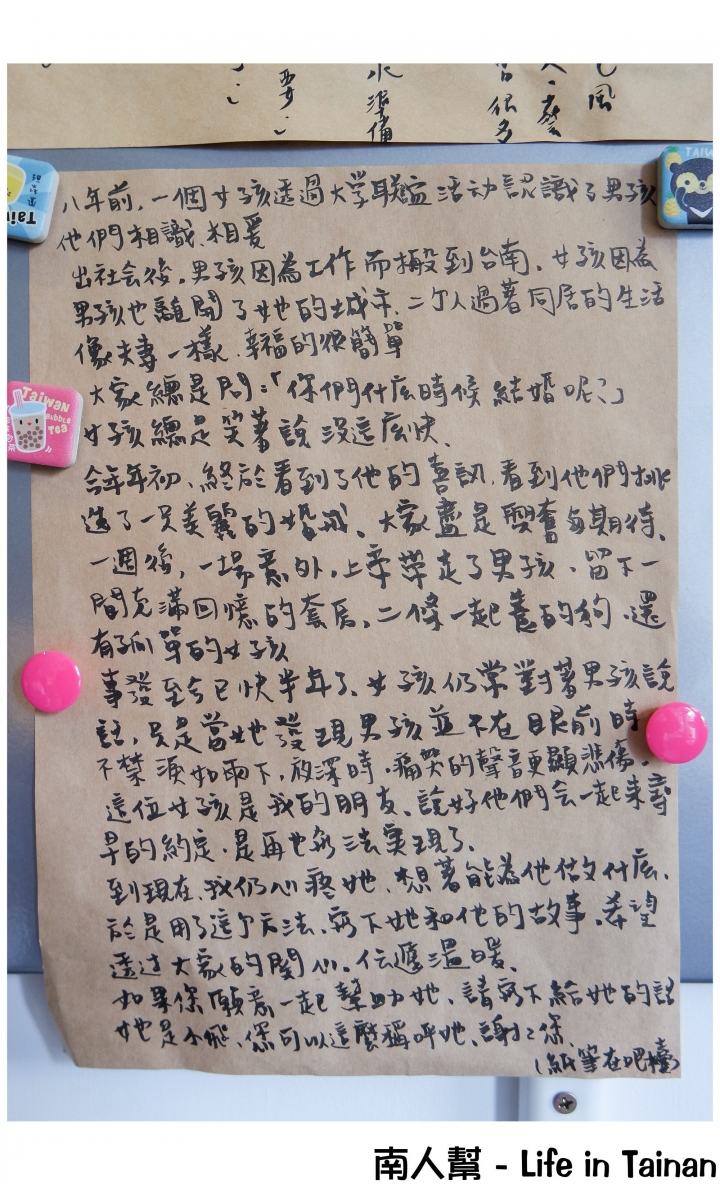 風
很多
水準備
要
八年前,一個女孩透過大学联誼活动認識了男孩
他們相識、相爱
出社会後,男孩因為工作而搬到台南,女孩因為
男孩也離開了她的城市,二个人過著同居的生活
像夫妻一樣,幸福的很簡單
大家總是問:「你們什広時候結婚呢?」
女孩總是笑著說沒這広快、
今年年初、終於看到了他的喜訊,看到他們挑
选了一只美麗的婚戒、大家盡是興奮与期待、
一週後,一場意外,上帝帶走了男孩、留下一
間充滿回憶的套房,二條一起養的狗,還
有孤單的女孩
事發至今已快半年了、女孩仍常對著男孩說
話,只是當她發現男孩並不在眼前時
不禁淚如雨下,夜深時,痛哭的聲音更顯悲傷。
這位女孩是我的朋友、說好他們会一起來尋
早的約定,是再也無法實現了、
到現在,我仍心疼她、想著能為他做女什広、
於是用了這个方法、寫下她和他的故事、希望
透过大家的関心,伝遞溫暖、
如果您願意一起幫助她、請寫下給她的話
她是小飛、您可以這麼稱呼她、謝謝您、
(紙筆在吧檯)
Taiwan
TAIWAN
Taiwan
BUBBLE
TEA
南人幫 - Life in Tainan